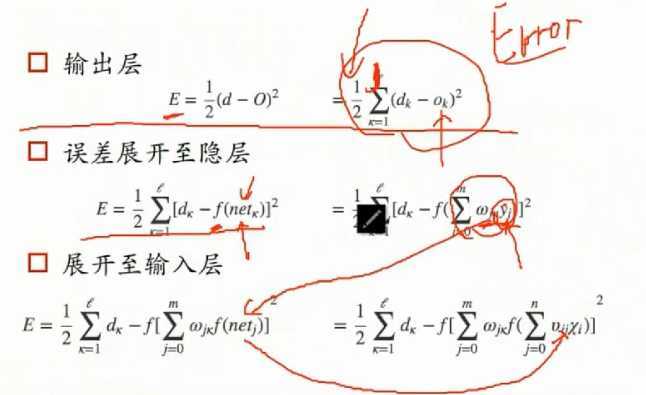 Error
□ 输出层
E = 1/2 (d − O)² = 1/2 ∑κ=1 (dₖ − oₖ)²
□ 误差展开至隐层
E = 1/2 ∑κ=1^ℓ [dκ − f(netκ)]² = 1/2 ∑κ=1^ℓ [dκ − f(∑j=0^m ωjκ yj)]²
□ 展开至输入层
E = 1/2 ∑κ=1^ℓ dκ − f[∑j=0^m ωjκ f(netj)]² = 1/2 ∑κ=1^ℓ dκ − f[∑j=0^m ωjκ f(∑j=0^n υij χi)]²